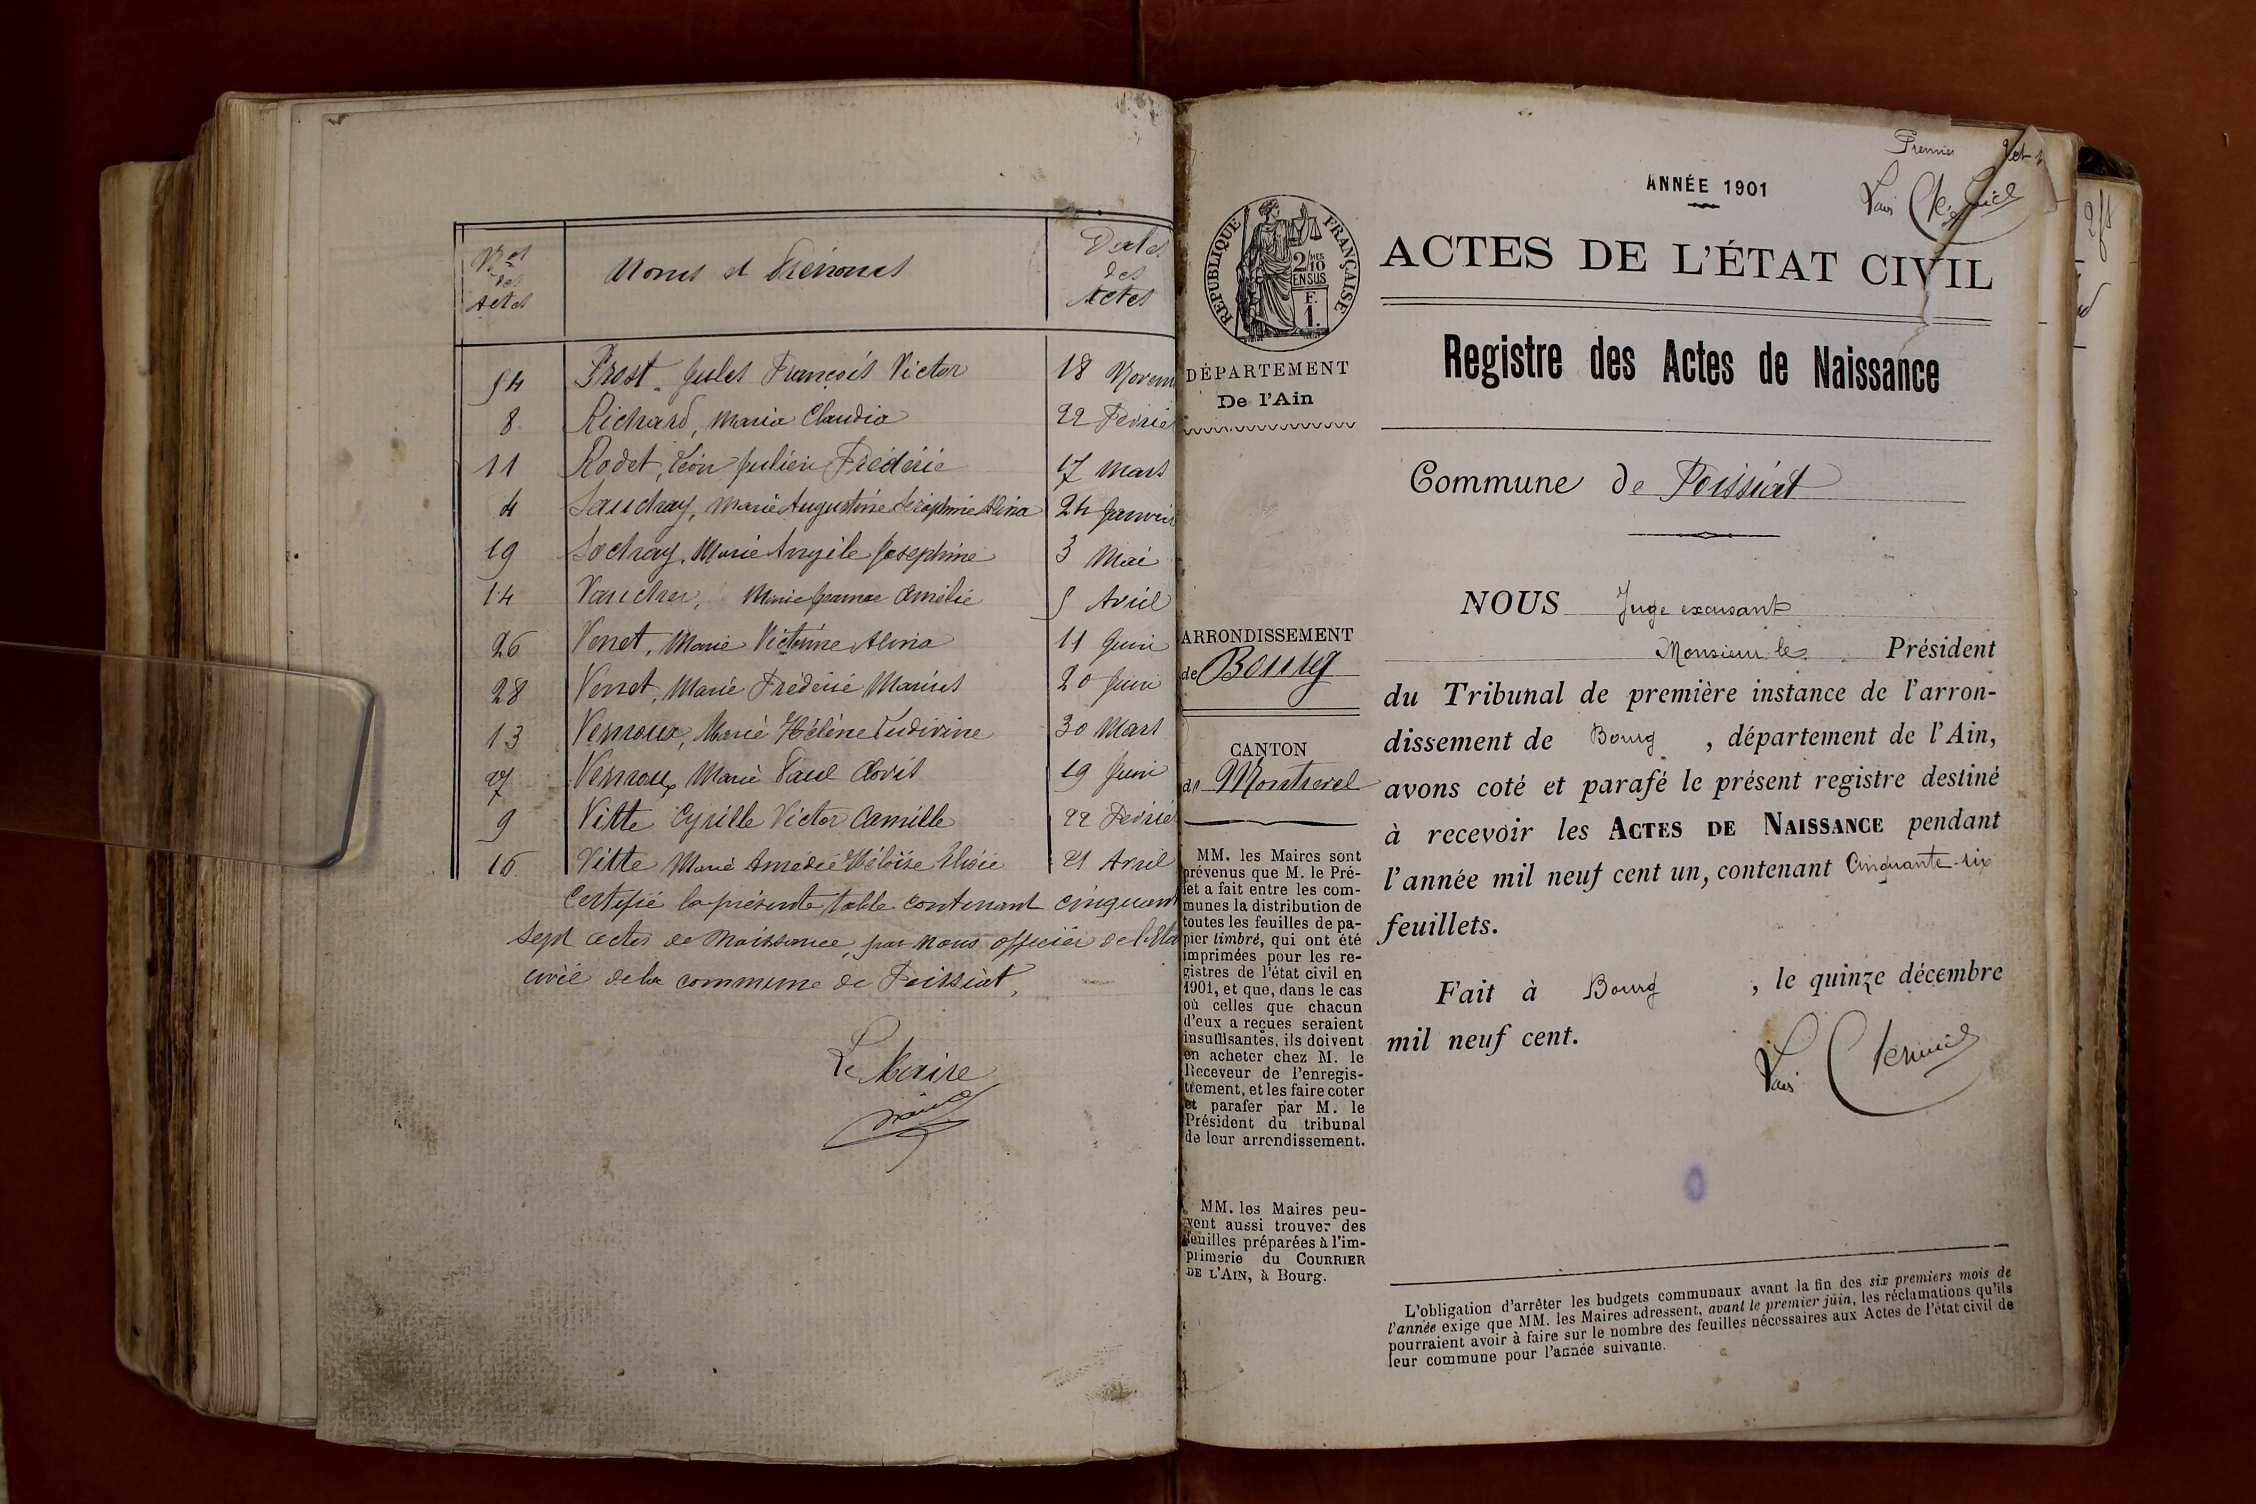 Nos des Actes
Noms et Prénoms
Dates des Actes
54 Prost, Jules François Victor 18 Novem
8 Richard, Maria Claudia 22 Février
11 Rodet, Léon Julien Frédéric 17 Mars
4 Sauchay, Marie Augustine Séraphine Alina 24 Janvier
19 Sochay, Marie Angèle Josephine 3 Mai
14 Vaucher, Marie Jeanne Amélie 5 Avril
26 Venet, Marie Victorine Alina 11 Juin
28 Venet, Marie Frédéric Marius 20 Juin
13 Vernoux, Marie Hélène Ludivine 30 Mars
27 Vernoux, Marie Paul Clovis 19 Juin
9 Vitte Cyrille Victor Camille 22 Février
16 Vitte Marie Amédée Héloïse Elisée 21 Avril
Certifié la présente table contenant cinquant
sept actes de Naissance, par nous officier de l'Eta
civil de la commune de Foissiat,
Le Maire
Premier
ANNÉE 1901
RÉPUBLIQUE FRANÇAISE
2/10 MES
EN SUS
F.
1.
ACTES DE L'ÉTAT CIVIL
Registre des Actes de Naissance
DÉPARTEMENT
De l'Ain
Commune de Foissiat
NOUS Juge excusant
Monsieur le Président
du Tribunal de première instance de l'arron-
dissement de Bourg, département de l'Ain,
avons coté et parafé le présent registre destiné
à recevoir les ACTES DE NAISSANCE pendant
l'année mil neuf cent un, contenant Cinquante-six
feuillets.
Fait à Bourg, le quinze décembre
mil neuf cent.
ARRONDISSEMENT
de Bourg
CANTON
de Montrevel
MM. les Maires sont
prévenus que M. le Pré-
fet a fait entre les com-
munes la distribution de
toutes les feuilles de pa-
pier timbré, qui ont été
imprimées pour les re-
gistres de l'état civil en
1901, et que, dans le cas
où celles que chacun
d'eux a reçues seraient
insuffisantes, ils doivent
en acheter chez M. le
Receveur de l'enregis-
trement, et les faire coter
et parafer par M. le
Président du tribunal
de leur arrondissement.
MM. les Maires peu-
vent aussi trouver des
feuilles préparées à l'im-
primerie du COURRIER
DE L'AIN, à Bourg.
L'obligation d'arrêter les budgets communaux avant la fin des six premiers mois de
l'année exige que MM. les Maires adressent, avant le premier juin, les réclamations qu'ils
pourraient avoir à faire sur le nombre des feuilles nécessaires aux Actes de l'état civil de
leur commune pour l'année suivante.